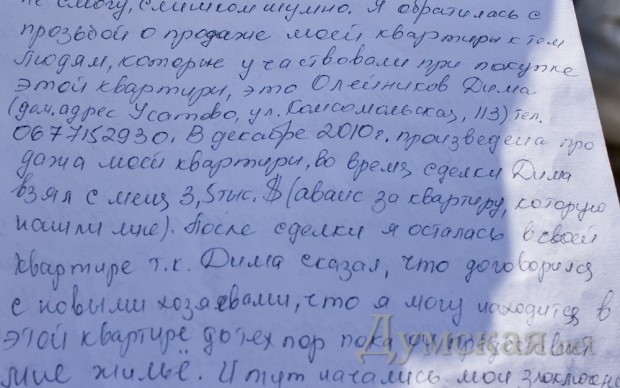 не смогу, слишком шумно. Я обратилась с
прозьбой о продаже моей квартиры к тем
людям, которые участвовали при покупке
этой квартиры, это Олейников Дима
(дом. адрес Усатово, ул. Комсомольская, 113) тел.
0677152930. В декабре 2010г. произведена про
дажа моей квартиры, во время сделки Дима
взял с меня 3,5 тыс. $ (аванс за квартиру, которую
нашли мне). После сделки я осталась в своей
квартире т.к. Дима сказал, что договорился
с новыми хозяевами, что я могу находится в
этой квартире до тех пор пока
мне жильё. И тут начались мои
Думская